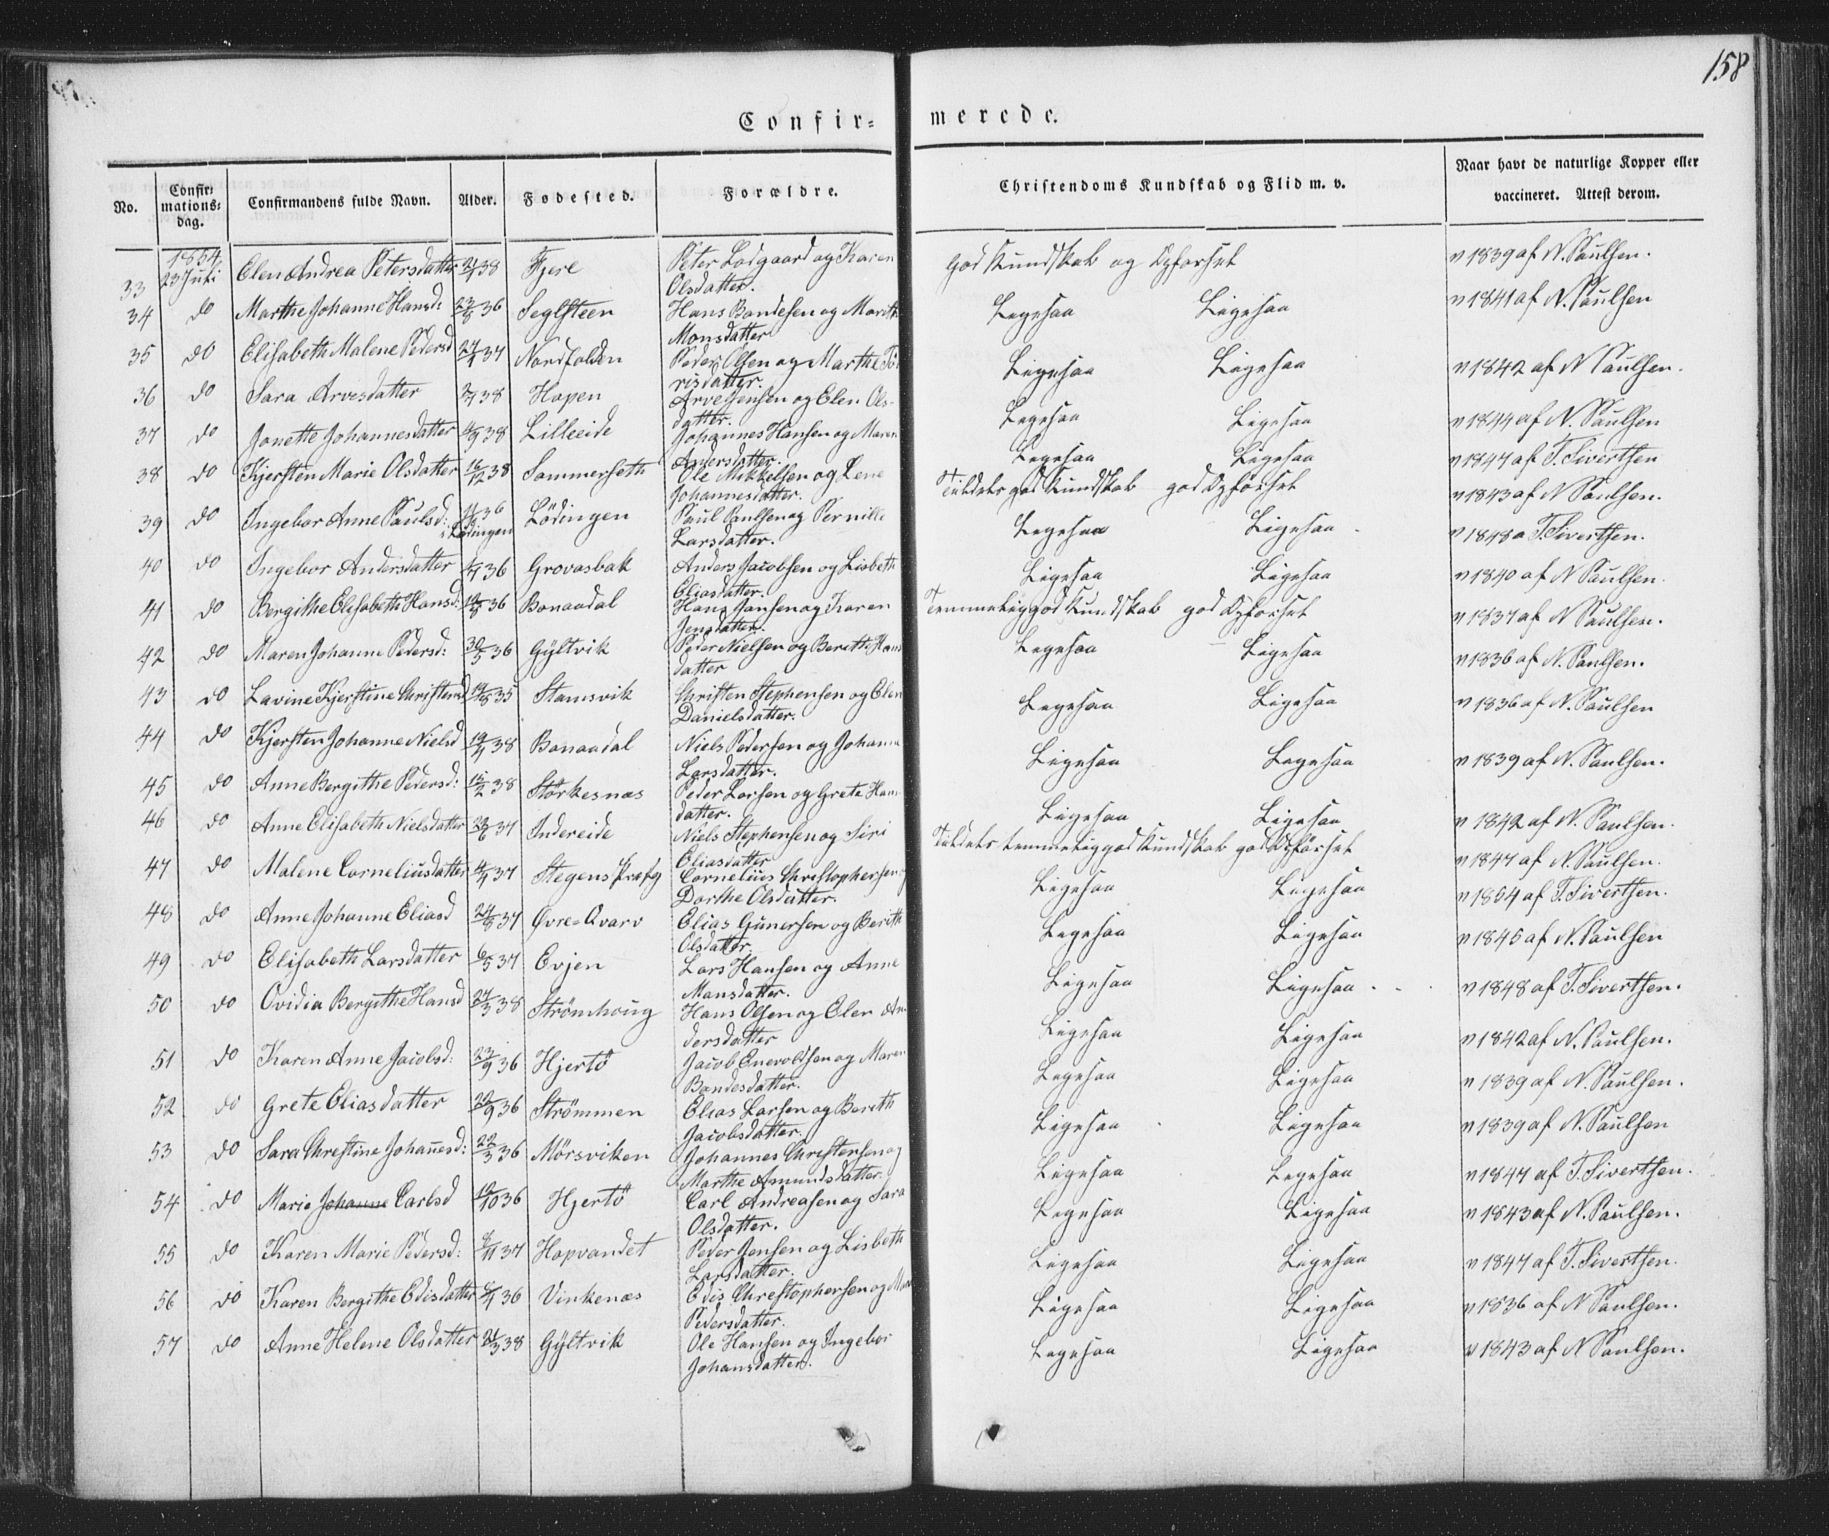 158
Confir= merede.
No. Confirmations: dag. Confirmandens fulde Navn. Alder. Fødested. Forældre. Christendoms Kundskab og Flid m. v. Naar havt de naturlige Kopper eller vaccineret. Attest derom.
1854
33 23 Juli Elen Andrea Petersdatter 38 Fjere Peter Lodgaard og Karen Olsdatter. god Kundskab og Opførsel v 1839 af N. Paulsen.
34 do Marthe Johanne Hansd: 23/8 36 Seglsteen Hans Bandesen og Marith Monsdatter Ligesaa Ligesaa v 1841 af N. Paulsen
35 do Elisabeth Malene Pedersd 37 Nordfolden Peder Olsen og Marthe risdatter. Ligesaa Ligesaa v 1842 af N Paulsen.
36 do Sara Arvesdatter 38 Hopen Arve Jensen og Elen Olsdatter. Ligesaa Ligesaa v 1844 af N. Paulsen
37 do Jonette Johannesdatter 38 Lilleeide Johannes Hansen og Maren Andersdatter. Ligesaa Ligesaa v 1847 af T. Sivertsen
38 do Kjersten Marie Olsdatter 38 Sommerseth Ole Mikkelsen og Lene Johannesdatter. Tildels god Kundskab god Opførsel v 1843 af N Paulsen.
39 do Ingebor Anne Paulsd: i Lødingen 36 Lödingen Paul Paulsen og Pernille Larsdatter. Ligesaa Ligesaa v 1848 a T. Sivertsen.
40 do Ingebor Andersdatter 36 Grovasbak Anders Jacobsen og Lisbeth Eliasdatter. Ligesaa Ligesaa v 1840 af N Paulsen.
41 do Bergithe Elisabeth Hansd: 36 Bonaadal Hans Jansen og Karen Jensdatter. Temmelig god Kundskab god Opførsel v 1837 af N Paulsen.
42 do Maren Johanne Pedersd: 30/5 36 Gyltvik Peder Nielsen og Berith Hansdatter Ligesaa Ligesaa v 1836 af N. Paulsen.
43 do Lavine Kjerstine Christensd 19/8 35 Stamsvik Christen Stephensen og Elen Danielsdatter. Ligesaa Ligesaa v 1836 af N. Paulsen
44 do Kjersten Johanne Nielsd 38 Bonaadal Niels Pedersen og Johanna Larsdatter. Ligesaa Ligesaa v 1839 af N. Paulsen.
45 do Anne Bergithe Pedersd: 15/2 38 Störkesnæs Peder Larsen og Grete Hansdatter. Ligesaa Ligesaa v 1842 af N. Paulsen.
46 do Anne Elisabeth Nielsdatter 37 Indereide Niels Stephensen og Siri Eliasdatter Tildels temmelig god Kundskab god Opførsel v 1847 af N. Paulsen.
47 do Malene Corneliusdatter 37 Stegens Præstg Cornelius Christophersen og Dorthe Olsdatter. Ligesaa Ligesaa v 1854 af T. Sivertsen.
48 do Anne Johanne Eliasd 24/8 37 Øvre-Qvarv Elias Gunersen og Berith Olsdatter. Ligesaa Ligesaa v 1845 af N. Paulsen
49 do Elisabeth Larsdatter 6/5 37 Evjen Lars Hansen og Anne Mansdatter. Ligesaa Ligesaa v 1848 af T. Sivertsen.
50 do Ovidia Bergithe Hansd 27/3 38 Strömhoug Hans Olsen og Elen Andersdatter Ligesaa Ligesaa v 1842 af N. Paulsen.
51 do Karen Anne Jacobsd: 23/9 36 Hjertö Jacob Enevoldsen og Maren Bandesdatter. Ligesaa Ligesaa v 1839 af N. Paulsen.
52 do Grete Eliasdatter 36 Strömmen Elias Larsen og Berith Jacobsdatter. Ligesaa Ligesaa v 1839 af N. Paulsen
53 do Sara Christine Johanesd: 22/3 36 Mörsviken Johannes Christensen og Marthe Amundsdatter. Ligesaa Ligesaa v 1847 af T. Sivertsen.
54 do Maria Johanne Carlsd 36 Hjertö Carl Andreasen og Sara Olsdatter. Ligesaa Ligesaa v 1843 af N. Paulsen.
55 do Karen Marie Pedersd: 37 Hopvandet Peder Jensen og Lisbeth Larsdatter. Ligesaa Ligesaa v 1847 af T. Sivertsen.
56 do Karen Bergithe Edisdatter 36 Vinkenæs Edis Christophersen og Pedersdatter. Ligesaa Ligesaa v 1836 af N Paulsen.
57 do Anne Helene Olsdatter 38 Gyltvik Ole Hansen og Ingebor Johansdatter. Ligesaa Ligesaa v 1843 af N Paulsen.